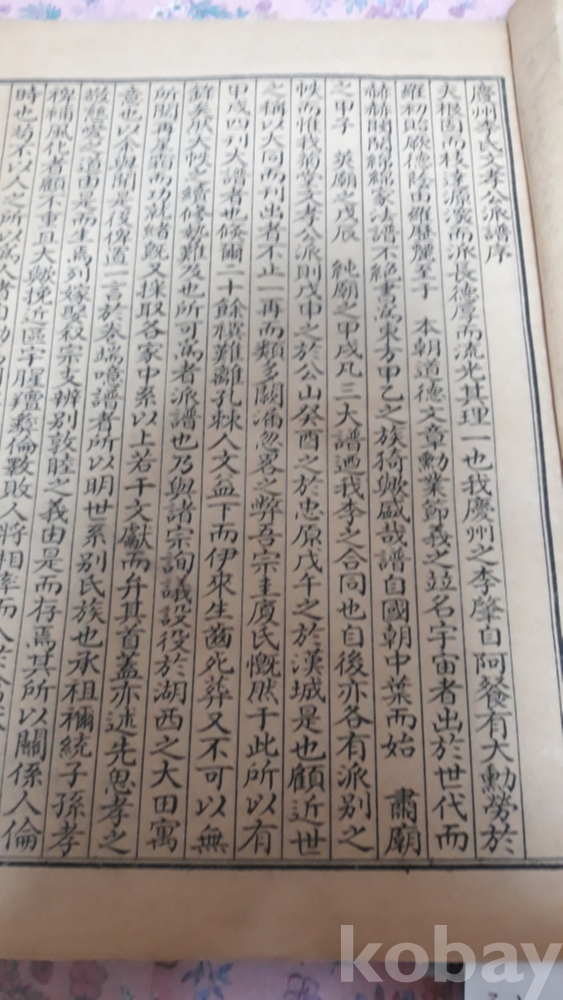 慶州李氏文孝公派譜序
夫根固而枝達源深而派長德厚而流光其理一也我慶州之李肇自 阿餐有大勳勞於
羅初貽厥德蔭由羅歷麗至于 本朝道德文章勳業節義之竝名宇宙者出於世代而
赫赫閥閱綿綿家法譜不絕書爲東方甲乙之族猗歟盛哉譜自國朝中葉而始 肅廟
之甲子 英廟之戊辰 純廟之甲戌凡三大譜迺我李之合同也自後亦各有派別之
帙而惟我菊堂文孝公派則戊申之於公山癸酉之於忠原戊午之於漢城是也顧近世
之稱以大同而刊出者不止一再而類多闕漏忽畧之弊吾宗圭廈氏慨然于此所以有
甲戌四刊大譜者也倏爾二十餘禩難離孔棘人文益下而伊來生齒死葬又不可以無
錄矣厥大帙之續修勢難及也所可爲者派譜也乃與諸宗詢議設役於湖西之大田寓
所閱再星霜而功就緖旣又採取各家中系以上若干文獻而弁其首蓋亦述先思孝之
意也以余與聞是役俾道一言於卷端噫譜者所以明世系別氏族也承祖禰統子孫孝
敬慈愛之道由是而生焉列嫁娶叙宗支辨別敦睦之義由是而存焉其所以關係人倫
稗補風化者顧不重且大歟挽近區宇腥羶彜倫斁敗人將相率而入於
時也苟不以人之所以爲人者自
kobay